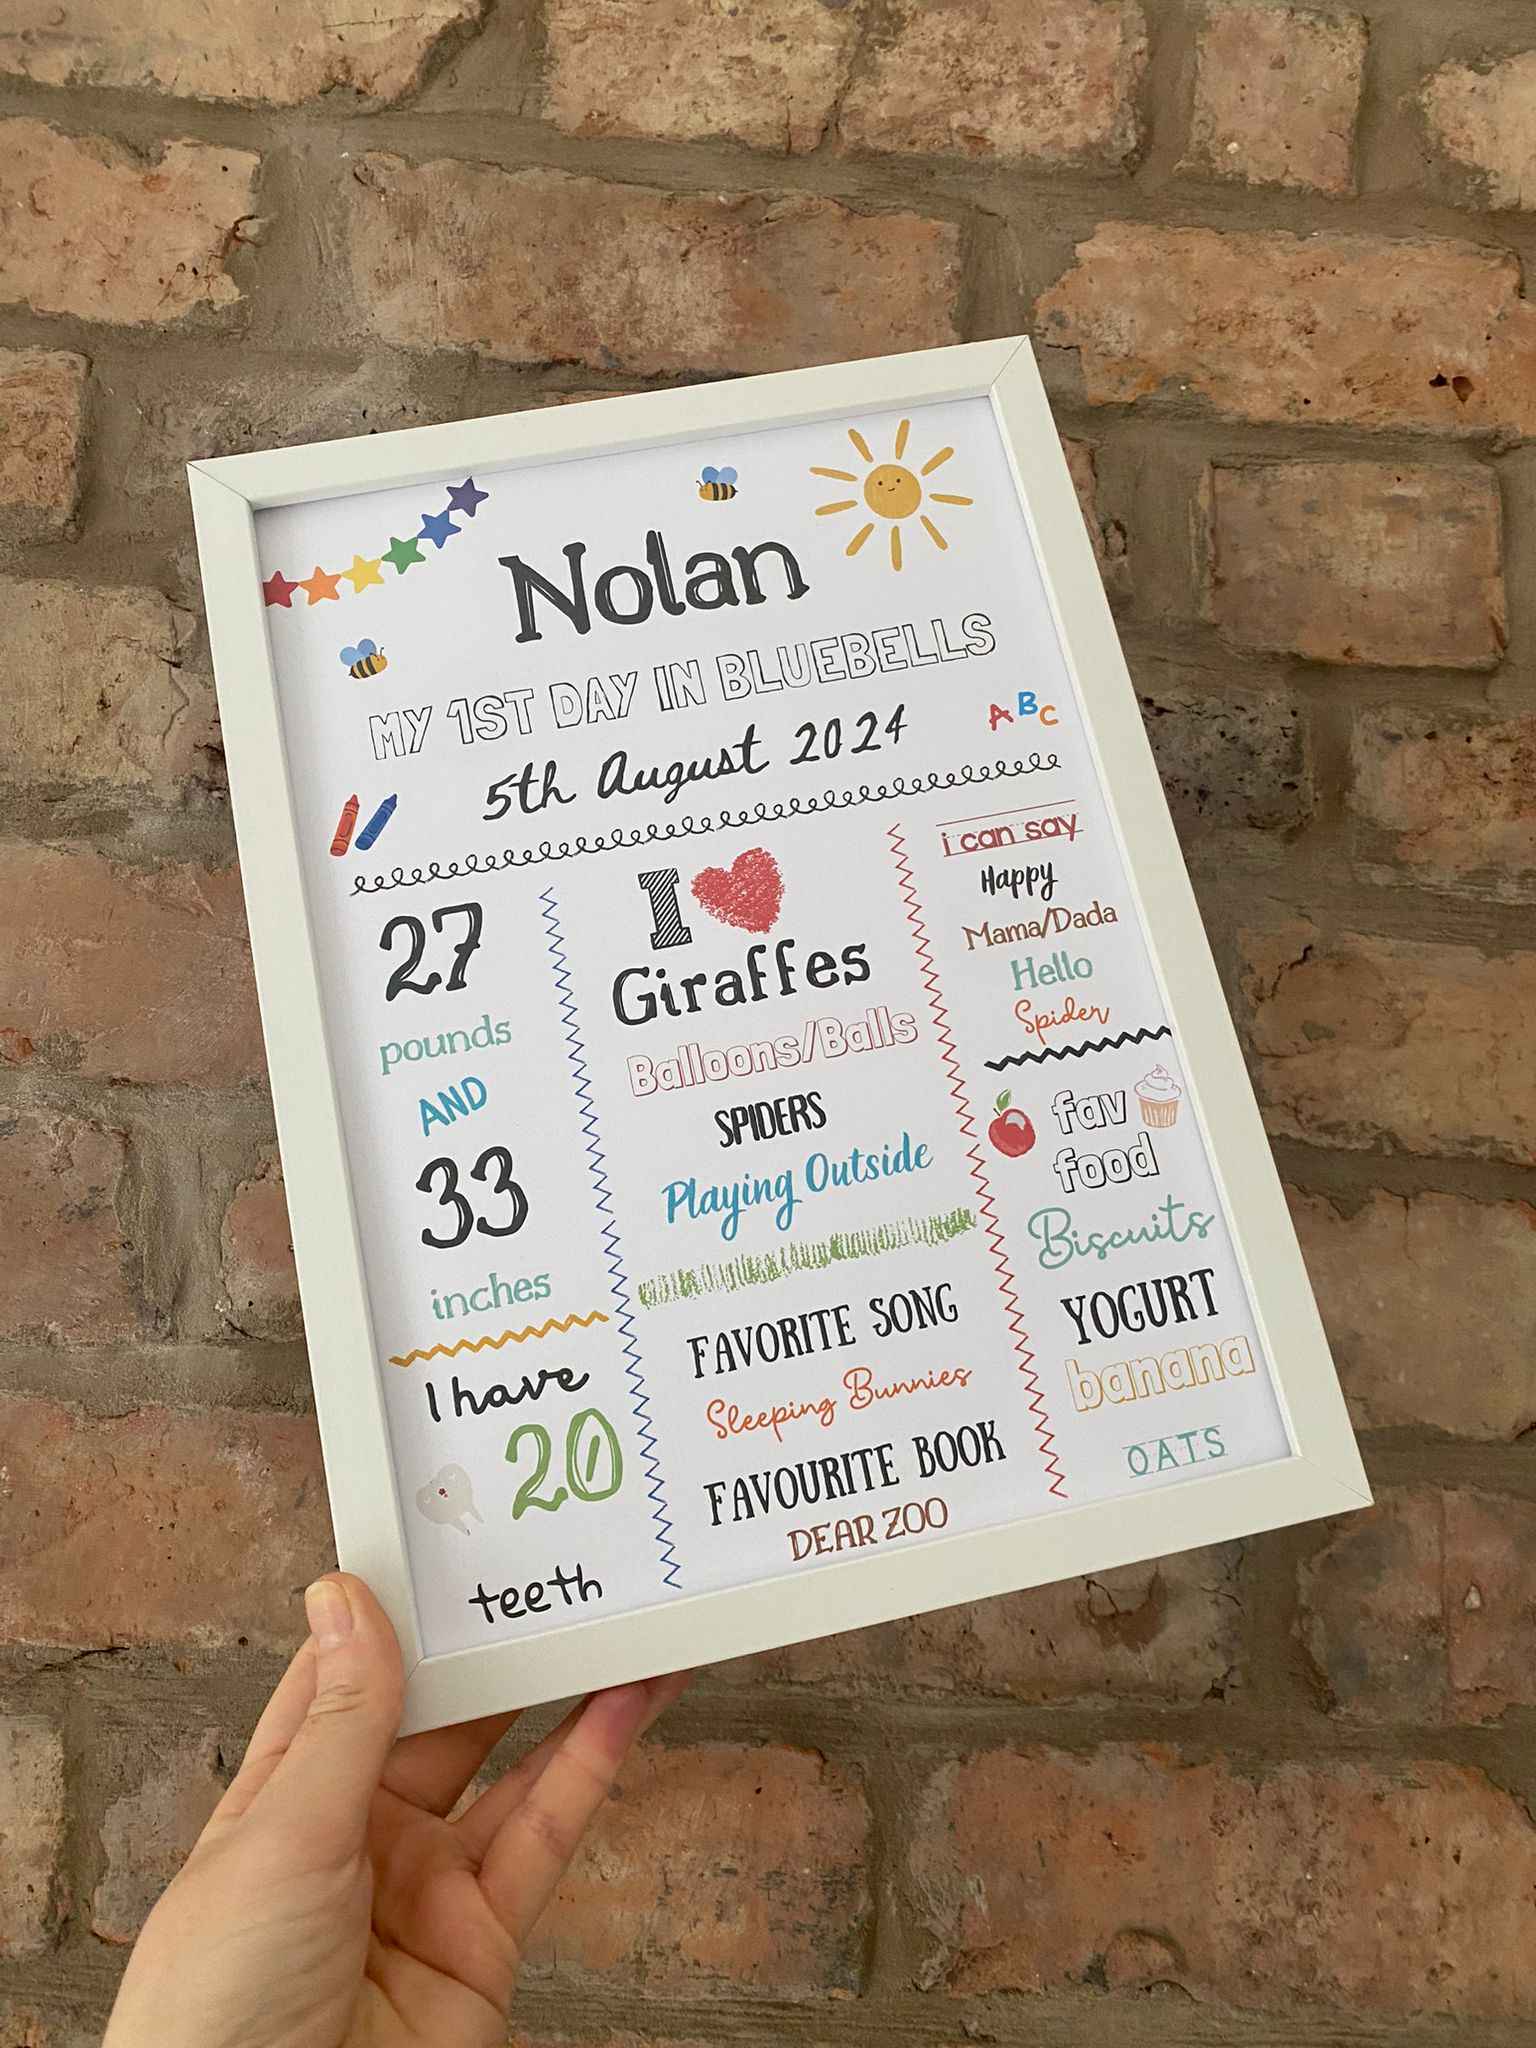 Nolan
MY 1ST DAY IN BLUEBELLS
5th August 2024
ABC
27
pounds
AND
33
inches
I have
20
teeth
I
Giraffes
Balloons/Balls
SPIDERS
Playing Outside
FAVORITE SONG
Sleeping Bunnies
FAVOURITE BOOK
DEAR ZOO
i can say
Happy
Mama/Dada
Hello
Spider
fav
food
Biscuits
YOGURT
banana
OATS